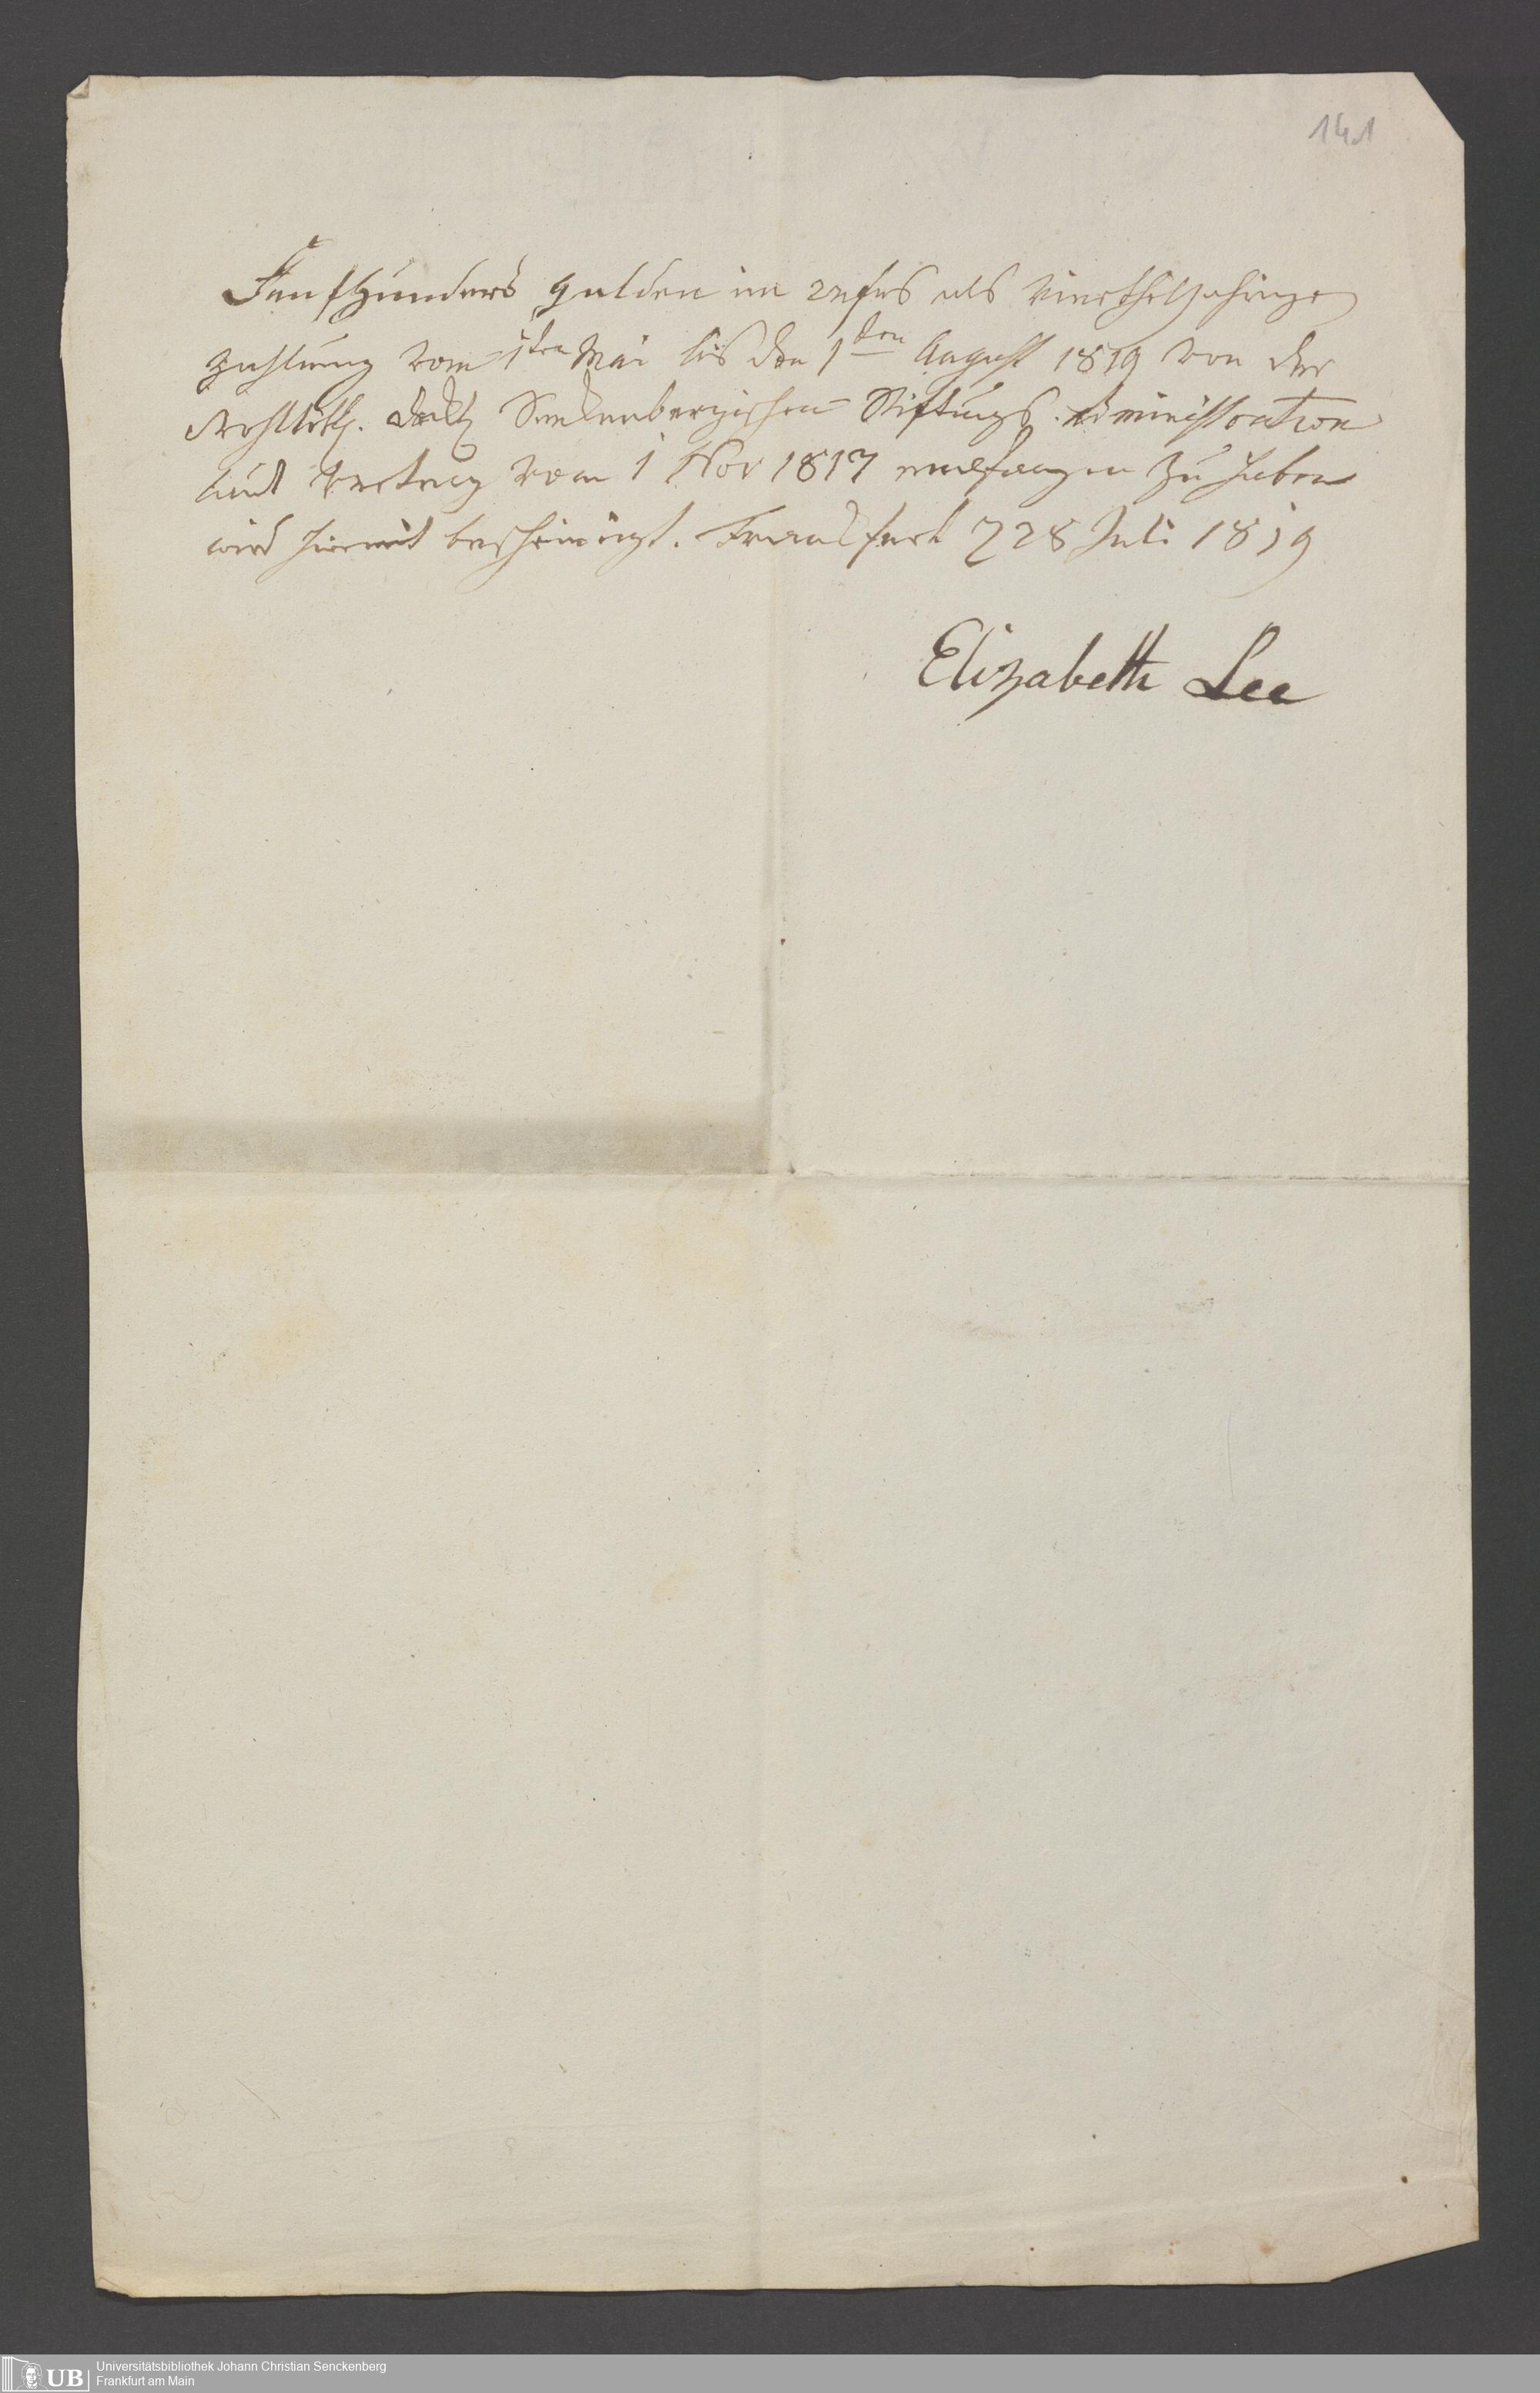 141
Funfhundert gulden im 24 fus als Vierthelljahrige
zahlung vom 1ten Mai bis den 1ten August 1819 von der
Wohllöbl. Senkenbergischen Stiftungs Administration
laut Vertrag vom 1 Nov 1817 empfangen zu haben
wird hiermit bescheinigt. Frankfurt 28 Juli 1819
Elizabeth Lee
UB
Universitätsbibliothek Johann Christian Senckenberg
Frankfurt am Main